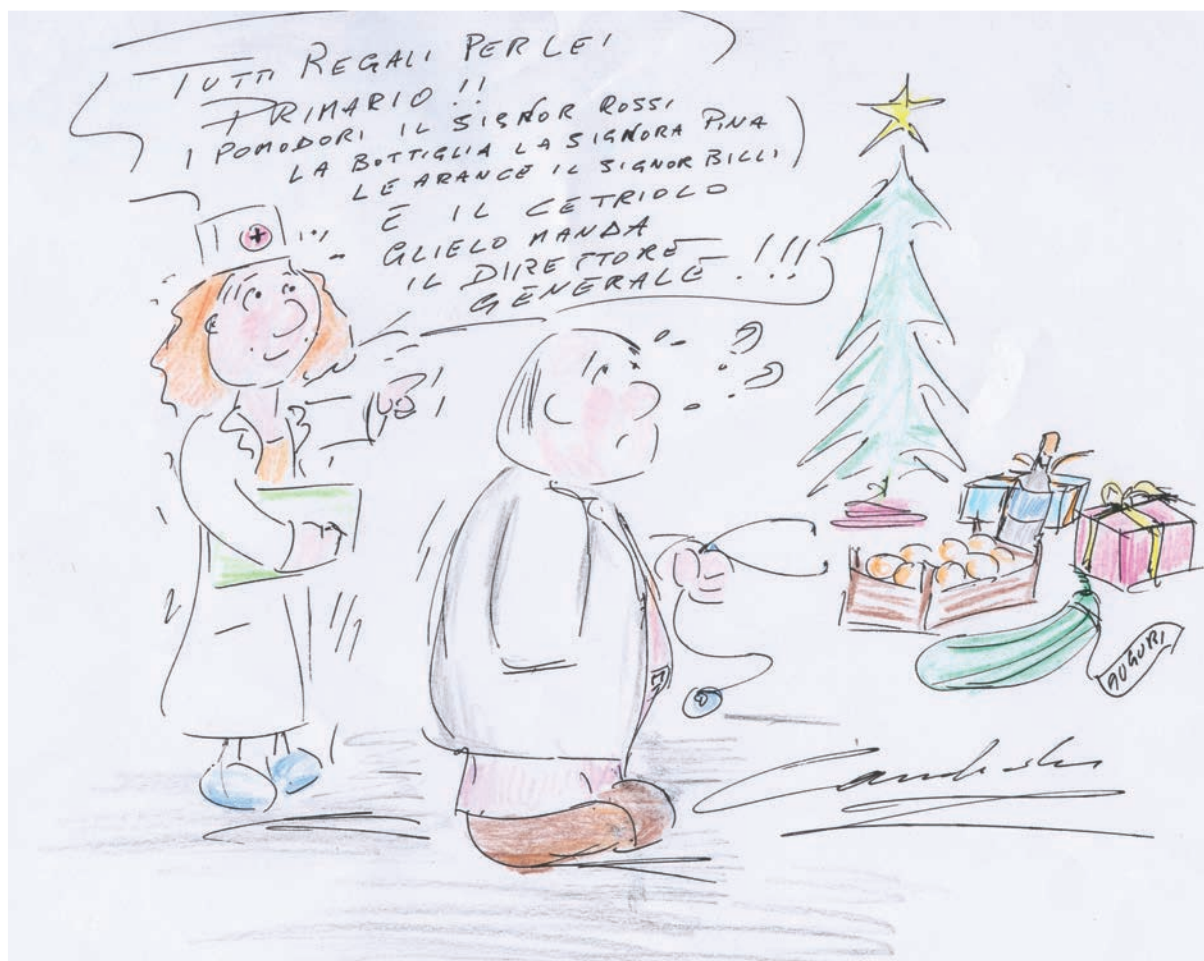 TUTTI REGALI PER LEI
PRIMARIO!!
I POMODORI IL SIGNOR ROSSI
LA BOTTIGLIA LA SIGNORA PINA
LE ARANCE IL SIGNOR BILLI
E IL CETRIOLO
GLIELO MANDA
IL DIRETTORE
GENERALE!!!
AUGURI